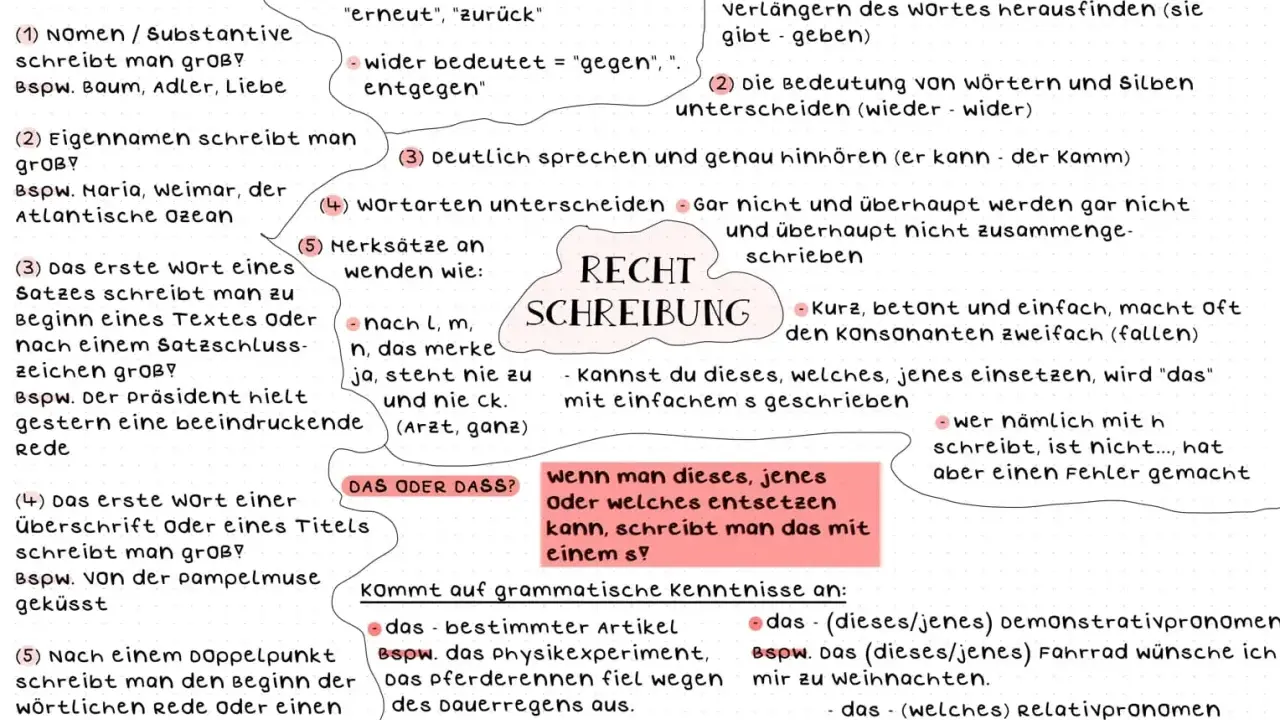 (1) Nomen / Substantive
schreibt man groß!
Bspw. Baum, Adler, Liebe
(2) Eigennamen schreibt man
groß!
Bspw. Maria, Weimar, der
Atlantische Ozean
(3) Das erste Wort eines
Satzes schreibt man zu
Beginn eines Textes oder
nach einem Satzschluss-
zeichen groß!
Bspw. Der Präsident hielt
gestern eine beeindruckende
Rede
(4) Das erste Wort einer
Überschrift oder eines Titels
schreibt man groß!
Bspw. Von der Pampelmuse
geküsst
(5) Nach einem Doppelpunkt
schreibt man den Beginn der
wörtlichen Rede oder einen
"erneut", "zurück"
- wider bedeutet = "gegen", ".
entgegen"
verlängern des Wortes herausfinden (sie
gibt - geben)
(2) Die Bedeutung von Wörtern und Silben
unterscheiden (wieder - wider)
(3) Deutlich sprechen und genau hinhören (er kann - der Kamm)
(4) Wortarten unterscheiden
- Gar nicht und überhaupt werden gar nicht
und überhaupt nicht zusammenge-
schrieben
(5) Merksätze an
wenden wie:
- nach l, m,
n, das merke
ja, steht nie zu
und nie ck.
(Arzt, ganz)
RECHT
SCHREIBUNG
- Kurz, betont und einfach, macht oft
den Konsonanten zweifach (fallen)
- Kannst du dieses, welches, jenes einsetzen, wird "das"
mit einfachem s geschrieben
- Wer nämlich mit h
schreibt, ist nicht..., hat
aber einen Fehler gemacht
DAS ODER DASS?
Wenn man dieses, jenes
oder welches entsetzen
kann, schreibt man das mit
einem s!
Kommt auf grammatische Kenntnisse an:
- das - bestimmter Artikel
Bspw. das Physikexperiment,
Das Pferderennen fiel wegen
des Dauerregens aus.
- das - (dieses/jenes) Demonstrativpronomen
Bspw. Das (dieses/jenes) Fahrrad wünsche ich
mir zu Weihnachten.
- das - (welches) Relativpronomen